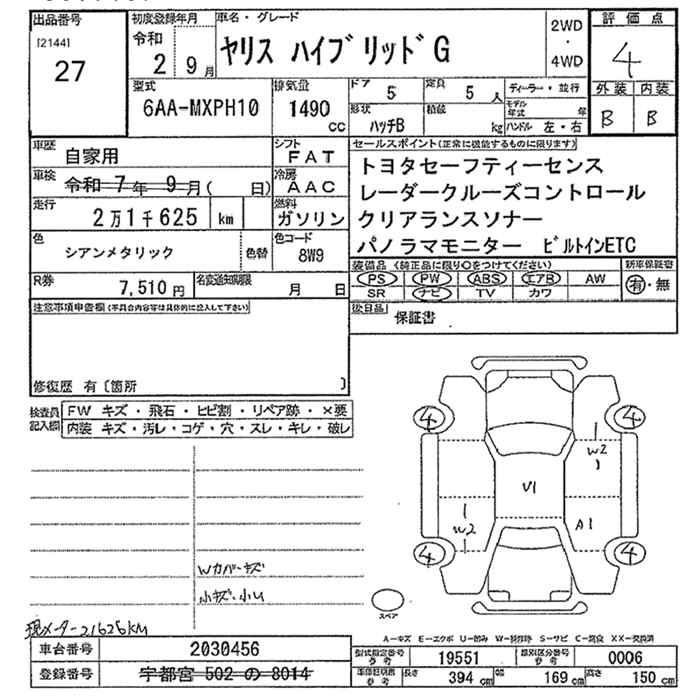 出品番号
[2144]
27
初度登録年月
令和
2 9月
車名・グレード
ヤリス ハイブリッド G
2WD
・
4WD
評価点
4
外装 内装
B B
型式
6AA-MXPH10
排気量
1490
CC
ドア
5
定員
5 人
ディーラー・並行
形状
ハッチB
積載
kg
モデル年式 年
ハンドル 左・右
車歴
自家用
シフト
FAT
車検
令和 7年 9月( 日)
冷房
AAC
走行
2万1千625 km
燃料
ガソリン
色
シアンメタリック
色替
色コード
8W9
R券
7,510円
名変通知期限
月 日
セールスポイント(正常に機能するものに限ります)
トヨタセーフティーセンス
レーダークルーズコントロール
クリアランスソナー
パノラマモニター ビルトインETC
装備品 (純正品に限り○をつけてください)
PS PW ABS エアB AW
SR ナビ TV カワ
新車保証書
有・無
後日品
保証書
注意事項申告欄(不具合内容等は具体的に記入して下さい)
修復歴 有〔箇所 〕
検査員記入欄
FW キズ・飛石・ヒビ割・リペア跡・×要
内装 キズ・汚レ・コゲ・穴・スレ・キレ・破レ
Wカバーキズ
小キズ・小U
現メーター21626KM
4 4
W2
U1
W2
A1
4 4
スペア
A-キズ E-エクボ U-凹み W-補修跡 S-サビ C-腐食 XX-交換済
車台番号
2030456
登録番号
宇都宮 502 の 8014
型式指定番号
参考
19551
類別区分番号
参考
0006
車検証記載
参考
長さ 394 cm
幅 169 cm
高さ 150 cm